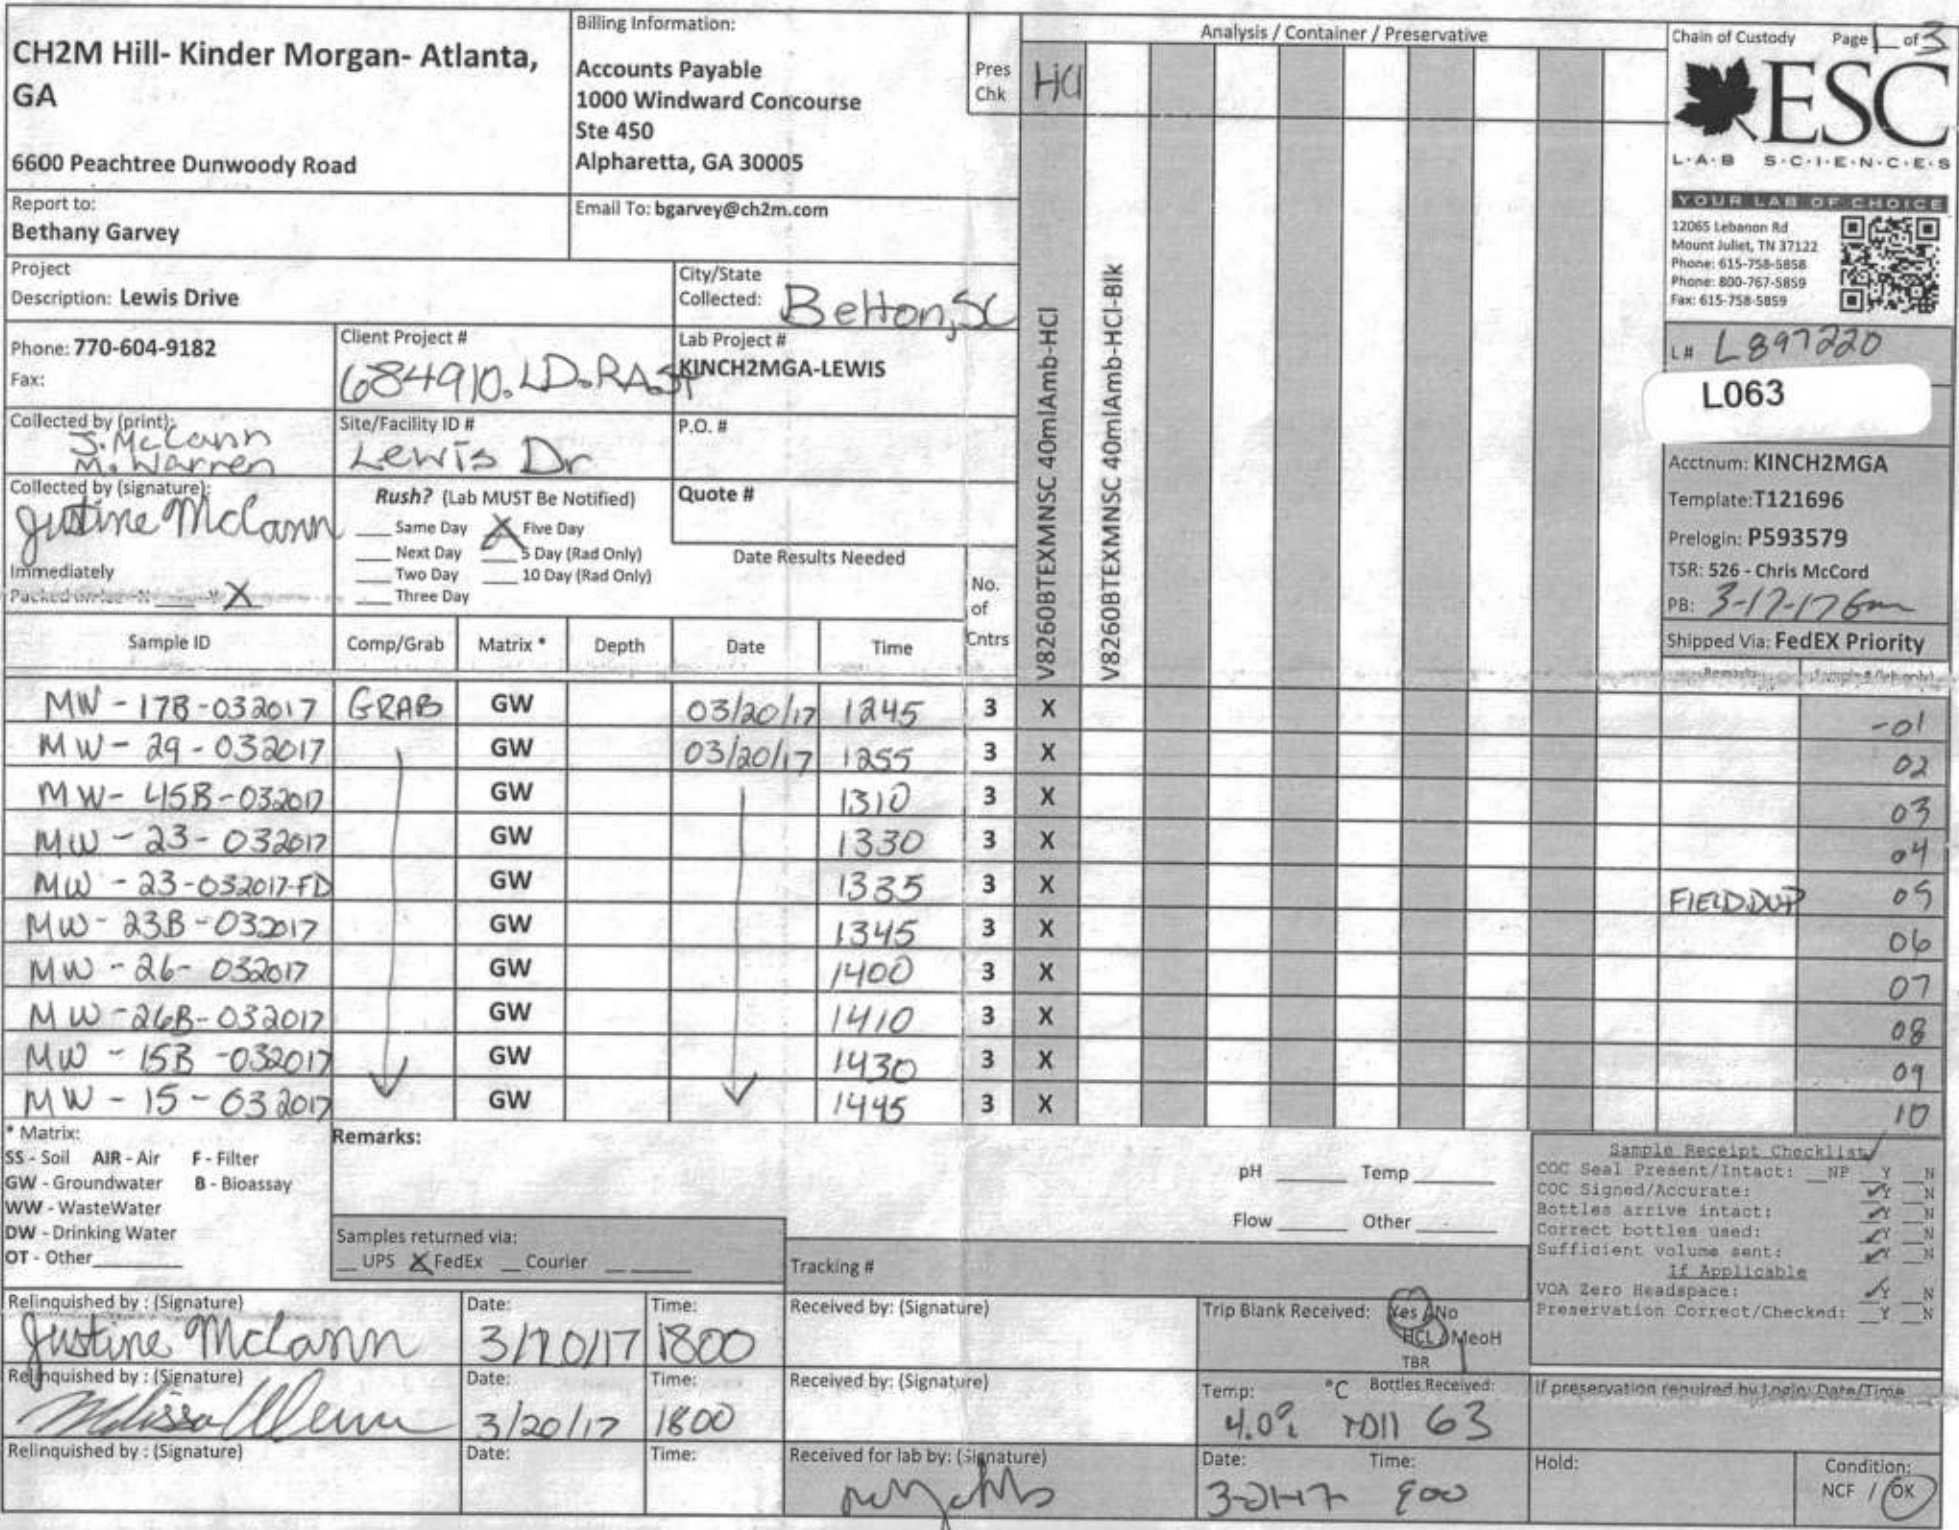 CH2M Hill- Kinder Morgan- Atlanta,
GA
6600 Peachtree Dunwoody Road
Billing Information:
Accounts Payable
1000 Windward Concourse
Ste 450
Alpharetta, GA 30005
Pres
Chk
HCl
Analysis / Container / Preservative
Chain of Custody Page 1 of 3
ESC
L·A·B S·C·I·E·N·C·E·S
YOUR LAB OF CHOICE
12065 Lebanon Rd
Mount Juliet, TN 37122
Phone: 615-758-5858
Phone: 800-767-5859
Fax: 615-758-5859
Report to:
Bethany Garvey
Email To: bgarvey@ch2m.com
Project
Description: Lewis Drive
City/State
Collected: Belton, SC
Phone: 770-604-9182
Fax:
Client Project #
684910.LD.RA.ST
Lab Project #
KINCH2MGA-LEWIS
Collected by (print):
J. McCann
M. Warren
Site/Facility ID #
Lewis Dr
P.O. #
Collected by (signature):
Justine McCann
Rush? (Lab MUST Be Notified)
Same Day X Five Day
Next Day 5 Day (Rad Only)
Two Day 10 Day (Rad Only)
Three Day
Quote #
Date Results Needed
Immediately
Packed on Ice N Y X
No.
of
Cntrs
V8260BTEXMNSC 40mlAmb-HCl
V8260BTEXMNSC 40mlAmb-HCl-Blk
L# L897220
L063
Acctnum: KINCH2MGA
Template: T121696
Prelogin: P593579
TSR: 526 - Chris McCord
PB: 3-17-17
Shipped Via: FedEX Priority
Sample ID Comp/Grab Matrix * Depth Date Time Remarks Sample # (lab only)
MW - 17B - 032017 GRAB GW 03/20/17 1245 3 X -01
MW - 29 - 032017 GW 03/20/17 1255 3 X 02
MW - 45B - 032017 GW 1310 3 X 03
MW - 23 - 032017 GW 1330 3 X 04
MW - 23 - 032017-FD GW 1335 3 X FIELD DUP 05
MW - 23B - 032017 GW 1345 3 X 06
MW - 26 - 032017 GW 1400 3 X 07
MW - 26B - 032017 GW 1410 3 X 08
MW - 15B - 032017 GW 1430 3 X 09
MW - 15 - 032017 GW 1445 3 X 10
* Matrix:
SS - Soil AIR - Air F - Filter
GW - Groundwater B - Bioassay
WW - WasteWater
DW - Drinking Water
OT - Other
Remarks:
pH Temp
Flow Other
Samples returned via:
UPS X FedEx Courier
Tracking #
Sample Receipt Checklist
COC Seal Present/Intact: NP Y N
COC Signed/Accurate: Y N
Bottles arrive intact: Y N
Correct bottles used: Y N
Sufficient volume sent: Y N
If Applicable
VOA Zero Headspace: Y N
Preservation Correct/Checked: Y N
Relinquished by : (Signature)
Justine McCann
Date: 3/20/17
Time: 1800
Received by: (Signature)
Trip Blank Received: Yes / No
HCL / MeoH
TBR
Relinquished by : (Signature)
Date: 3/20/17
Time: 1800
Received by: (Signature)
Temp: °C Bottles Received:
4.0 63
If preservation required by Login: Date/Time
Relinquished by : (Signature)
Date:
Time:
Received for lab by: (Signature)
Date: 3-21-17
Time: 900
Hold:
Condition:
NCF / OK